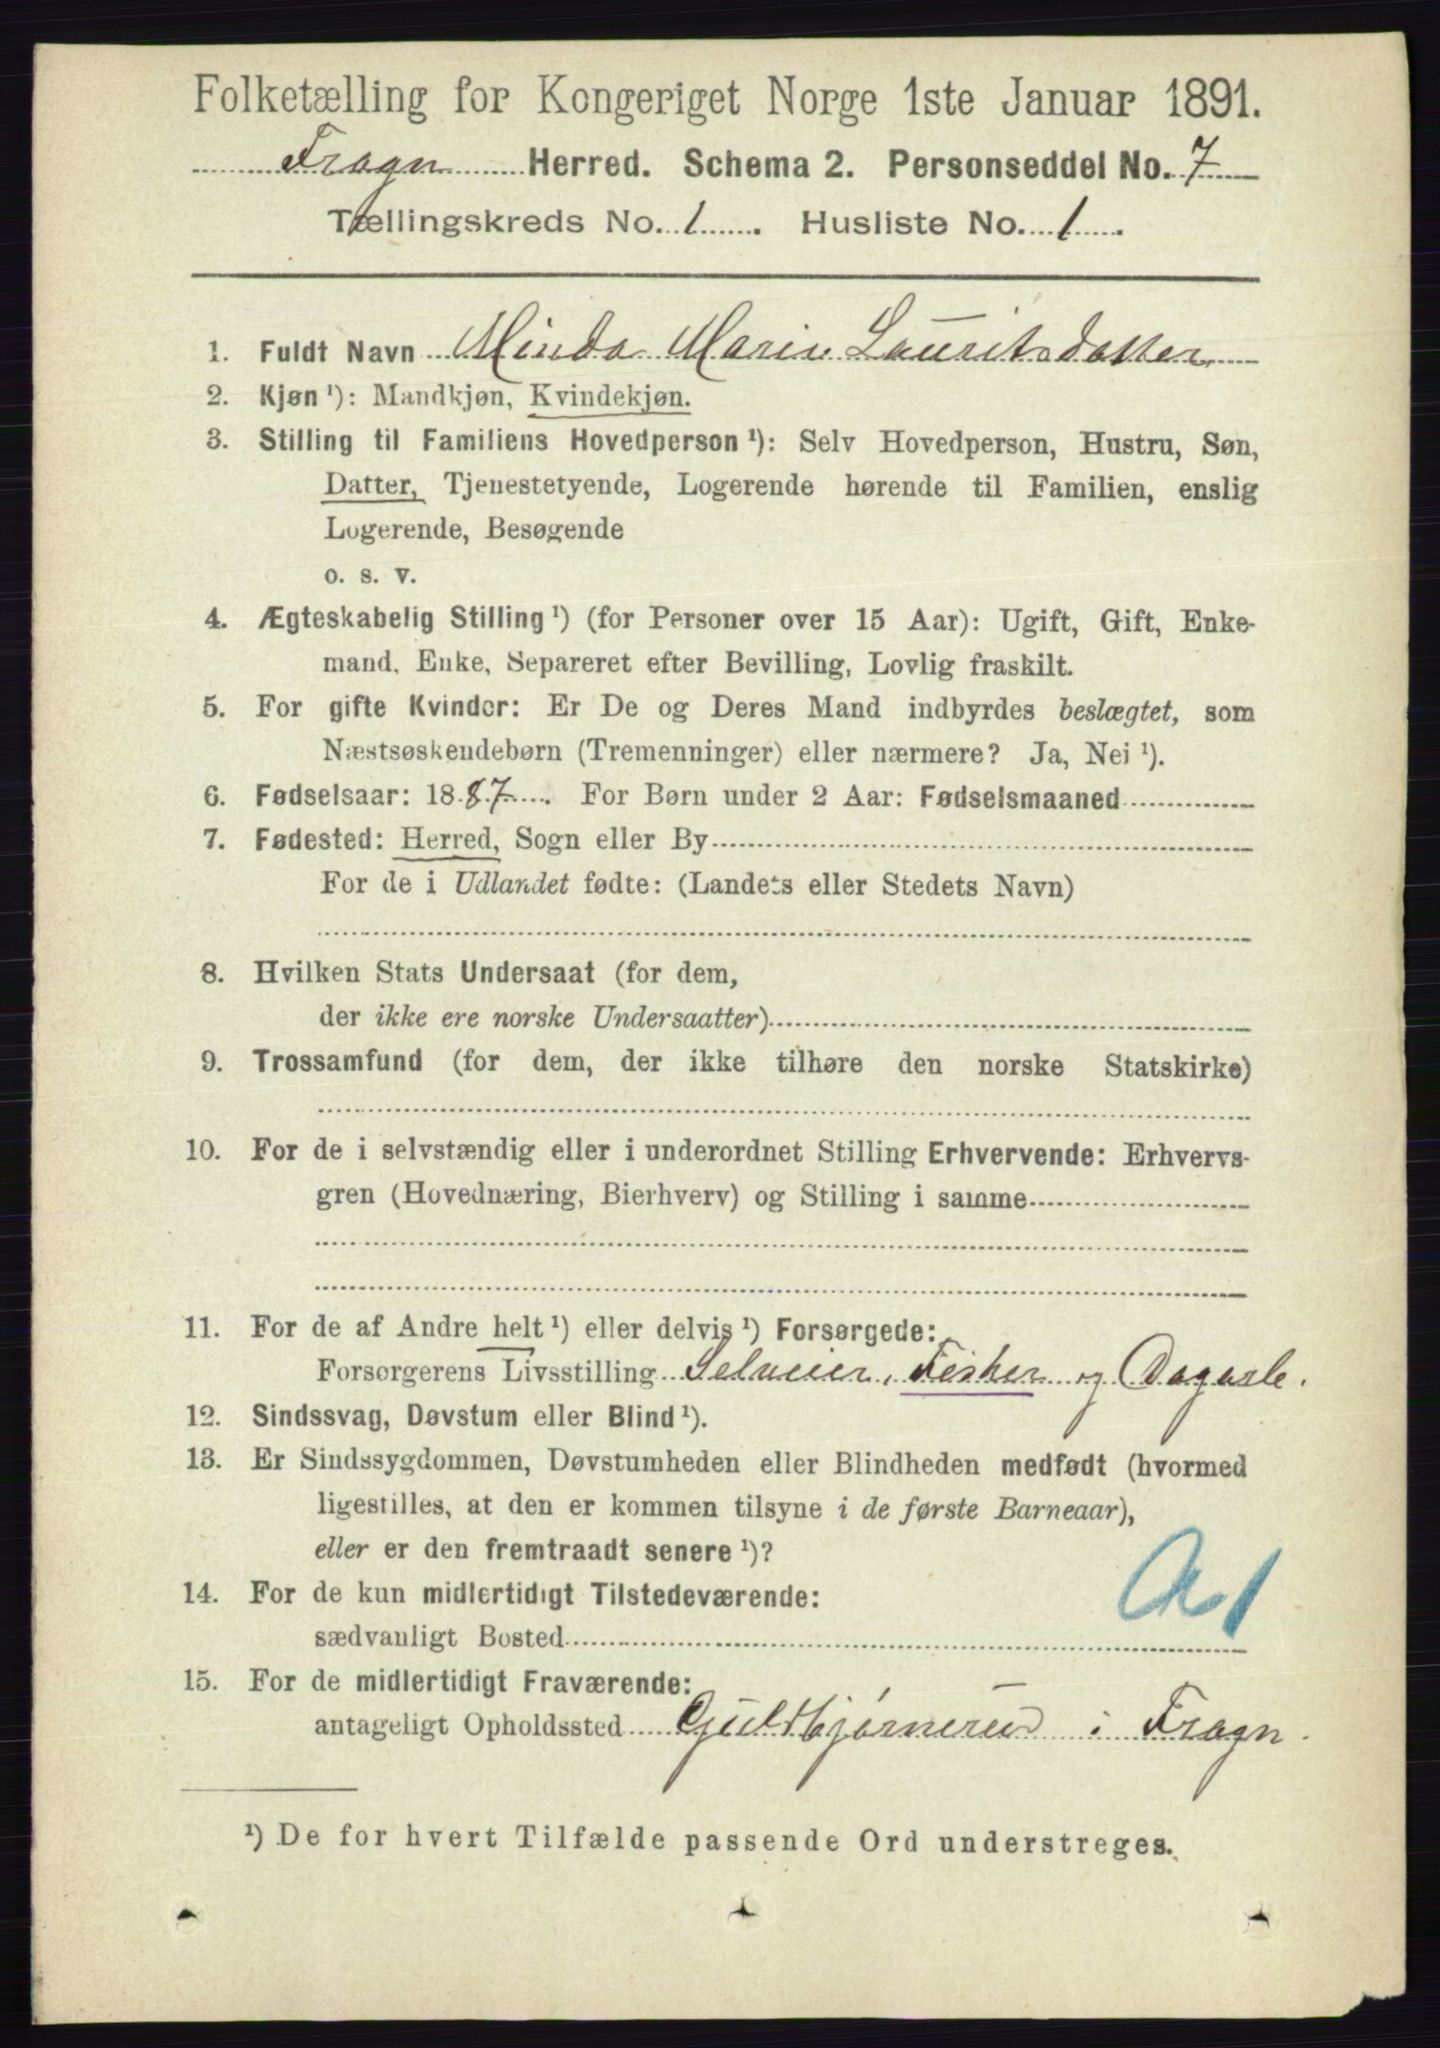 Folketælling for Kongeriget Norge 1ste Januar 1891.
Frogn Herred. Schema 2. Personseddel No. 7
Tællingskreds No. 1. Husliste No. 1.
1. Fuldt Navn Minda Marie Lauritsdatter
2. Kjøn ¹): Mandkjøn, Kvindekjøn.
3. Stilling til Familiens Hovedperson ¹): Selv Hovedperson, Hustru, Søn,
Datter, Tjenestetyende, Logerende hørende til Familien, enslig
Logerende, Besøgende
o. s. v.
4. Ægteskabelig Stilling ¹) (for Personer over 15 Aar): Ugift, Gift, Enke-
mand, Enke, Separeret efter Bevilling, Lovlig fraskilt.
5. For gifte Kvinder: Er De og Deres Mand indbyrdes beslægtet, som
Næstsøskendebørn (Tremenninger) eller nærmere? Ja, Nei ¹).
6. Fødselsaar: 1887. For Børn under 2 Aar: Fødselsmaaned
7. Fødested: Herred, Sogn eller By
For de i Udlandet fødte: (Landets eller Stedets Navn)
8. Hvilken Stats Undersaat (for dem,
der ikke ere norske Undersaatter)
9. Trossamfund (for dem, der ikke tilhøre den norske Statskirke)
10. For de i selvstændig eller i underordnet Stilling Erhvervende: Erhvervs-
gren (Hovednæring, Bierhverv) og Stilling i samme
11. For de af Andre helt ¹) eller delvis ¹) Forsørgede:
Forsørgerens Livsstilling Selveier, Fisker og Dagarb.
12. Sindssvag, Døvstum eller Blind ¹).
13. Er Sindssygdommen, Døvstumheden eller Blindheden medfødt (hvormed
ligestilles, at den er kommen tilsyne i de første Barneaar),
eller er den fremtraadt senere ¹)?
14. For de kun midlertidigt Tilstedeværende:
sædvanligt Bosted
a1
15. For de midlertidigt Fraværende:
antageligt Opholdssted Gulbjørnerud i Frogn.
¹) De for hvert Tilfælde passende Ord understreges.